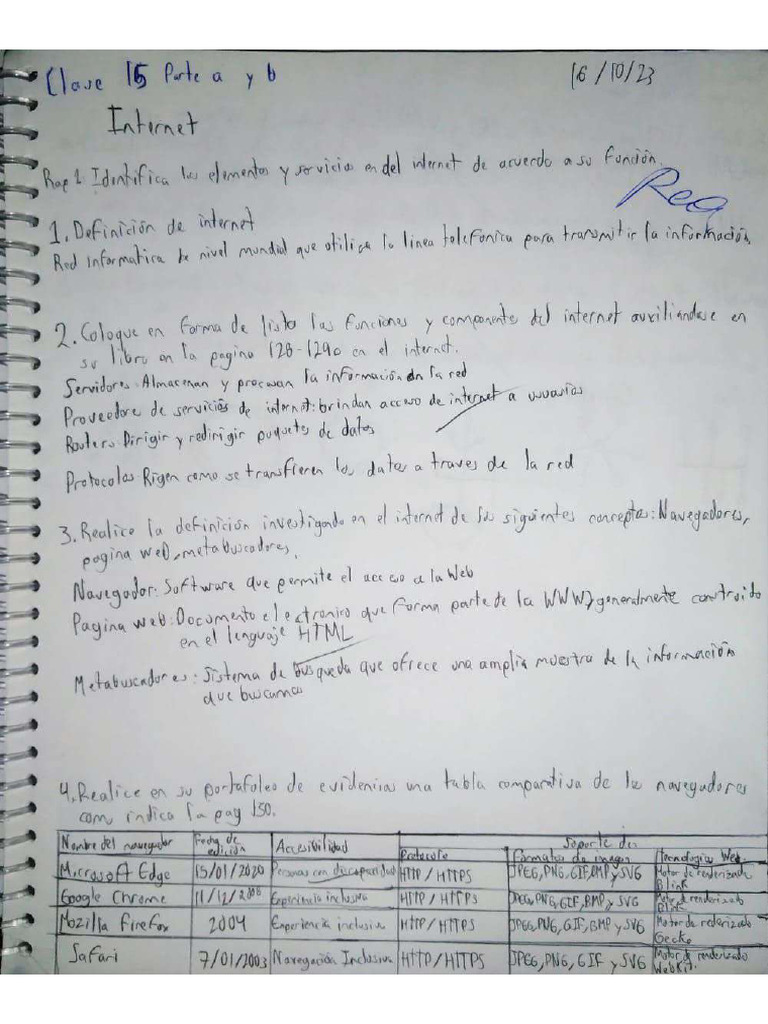 Clase 15 Parte a y b
16/10/23
Internet
Rap 1: Identifica los elementos y servicios en del internet de acuerdo a su función.
1. Definición de internet
Red informatica de nivel mundial que utiliza la linea telefonica para transmitir la información
2. Coloque en forma de lista las funciones y componentes del internet auxiliandose en
su libro en la pagina 128-129o en el internet.
Servidores: Almacenan y procesan la información en la red
Proveedore de servicios de internet: brindan acceso de internet a usuarios
Routers: Dirigir y redirigir paquetes de datos
Protocolos: Rigen como se transfieren los datos a traves de la red
3. Realice la definición investigada en el internet de los siguientes conceptos: Navegadores,
pagina web, metabuscadores.
Navegador: Software que permite el acceso a la Web
Pagina web: Documento electronico que forma parte de la WWW, generalmente construido
en el lenguaje HTML
Metabuscadores: Sistema de busqueda que ofrece una amplia muestra de la información
que buscamos
4. Realice en su portafoleo de evidencias una tabla comparativa de los navegadores
como indica la pag 150.
Nombre del navegador Fecha de edición Accesibilidad Soporte de:
Protocolo Formatos de imagen Tecnologias Web
Microsoft Edge 15/01/2020 Personas con discapacidad HTTP/HTTPS JPEG, PNG, GIF, BMP y SVG Motor de renderizado Blink
Google Chrome 11/12/2008 Experiencia inclusiva HTTP/HTTPS JPEG, PNG, GIF, BMP y SVG Motor de renderizado Blink
Mozilla Firefox 2004 Experiencia inclusiva HTTP/HTTPS JPEG, PNG, GIF, BMP y SVG Motor de rederizado Gecko
Safari 7/01/2003 Navegación Inclusiva HTTP/HTTPS JPEG, PNG, GIF y SVG Motor de renderizado WebKit.